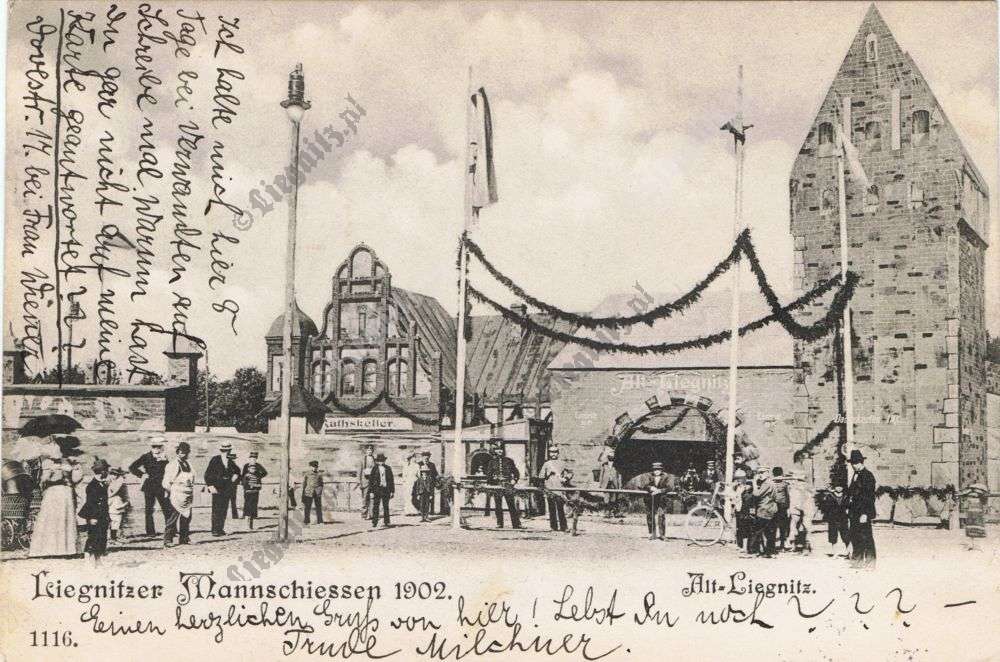 Ich halte mich hier 8
Tage bei Verwandten auf
Schreibe mal Warum hast
Du gar nicht auf meine
Karte geantwortet ? ? ?
Dovestr. 17. bei Frau Wiener
© Liegnitz.pl
Liegnitz.pl
Alt-Liegnitz
Rathskeller.
Liegnitz.pl
Liegnitzer Mannschiessen 1902.
Alt-Liegnitz.
Einen herzlichen Gruß von hier! Lebst Du noch ? ? ? —
1116.
Trude Milchner.